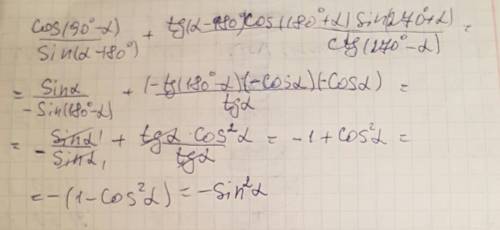 cos(90°-α)/sin(α-180°) + tg(α-180°)cos(180°+α)sin(270°+α)/ctg(270°-α) =
= sinα/-sin(180°-α) + (-tg(180°-α)(-cosα)(-cosα)/tgα =
= - sinα/sinα + tgα·cos²α/tgα = -1+cos²α =
= -(1-cos²α) = -sin²α